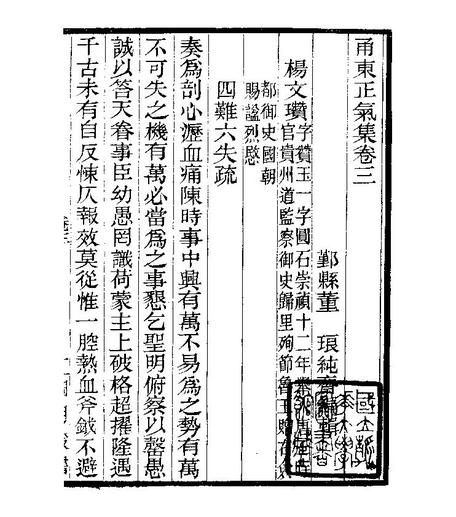 甬東正氣集卷三
鄞縣董 琅純齋
楊文瓚
字贊玉一字圓石崇禎十二年
官貴州道監察御史歸里殉節魯王贈右僉
都御史國朝
賜諡烈愍
四難六失疏
奏為剖心瀝血痛陳時事中興有萬不易為之勢有萬
不可失之機有萬必當為之事懇乞聖明俯察以罄愚
誠以答天眷事臣幼愚罔識荷蒙主上破格超擢隆遇
千古未有自反悚仄報效莫從惟一腔熱血斧鉞不避